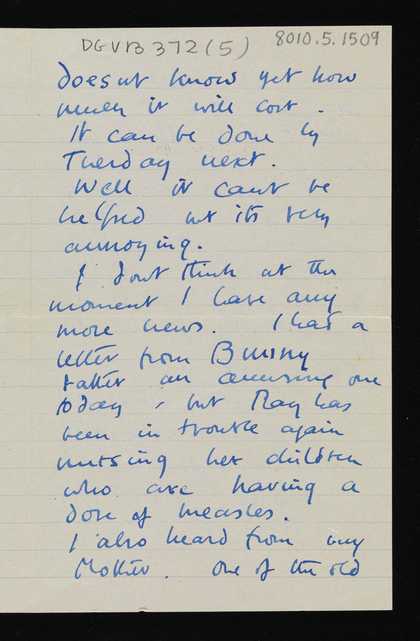 DGVB 372 (5) 8010.5.1509
doesnt know yet how
much it will cost.
It can be done by
Tuesday next.
Well it cant be
helped but its very
annoying.
I dont think at the
moment I have any
more news. I had a
letter from Bunny
rather an amusing one
today, but Ray has
been in trouble again
nursing her children
who are having a
dose of measles.
I also heard from my
Mother. One of the old